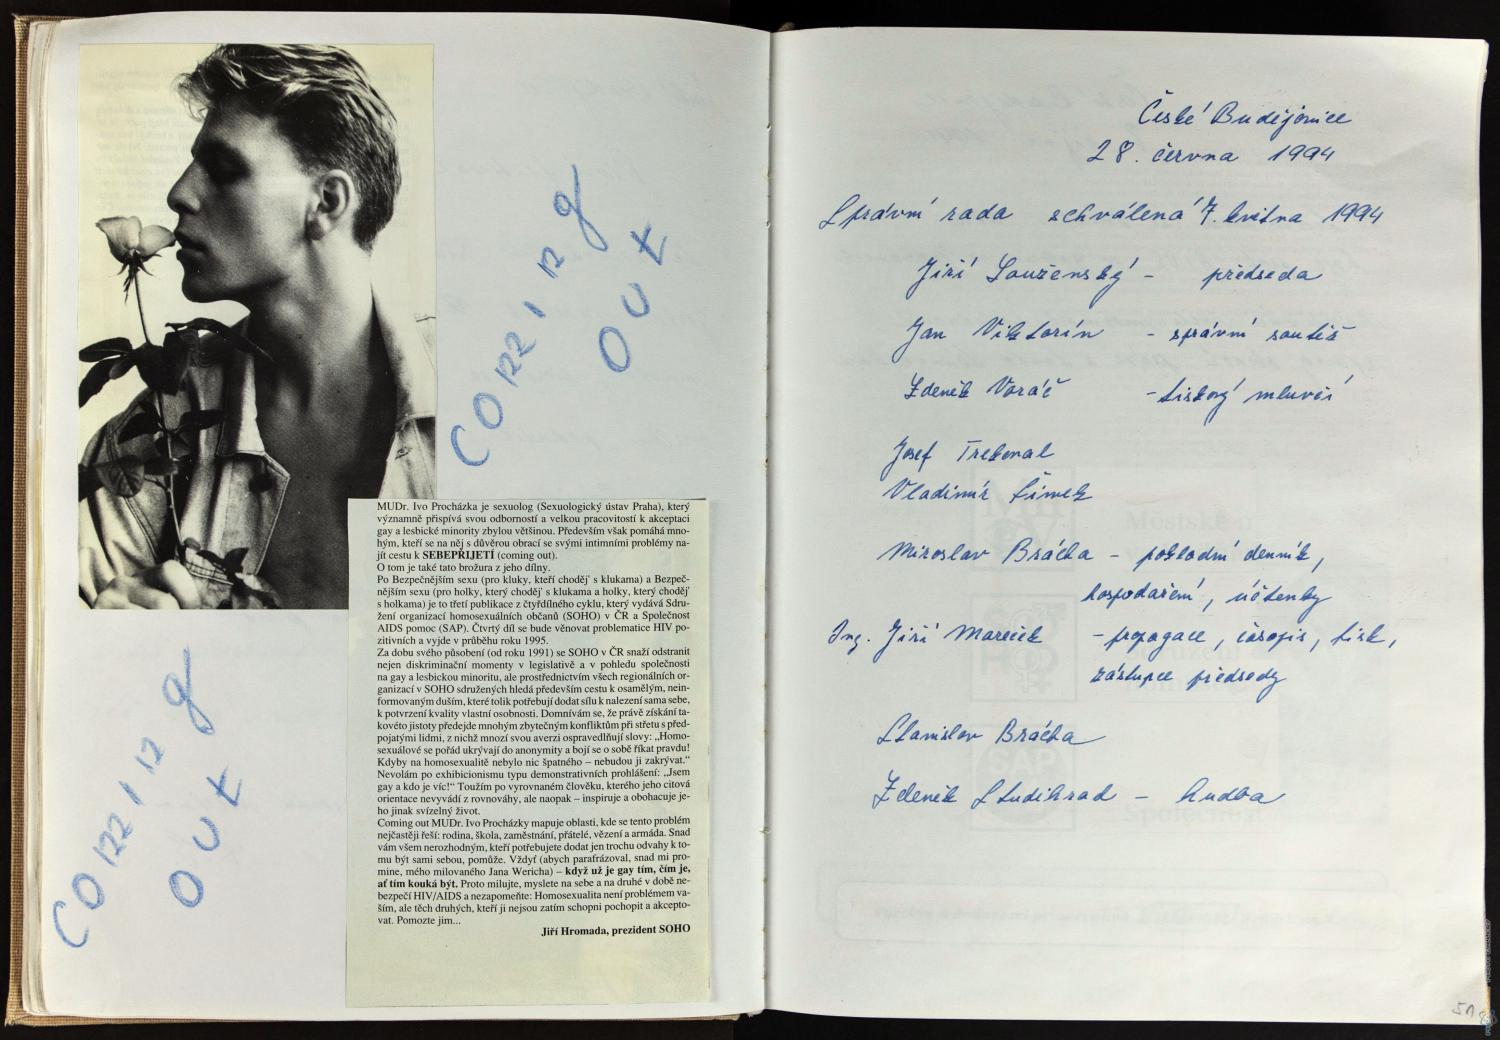 Coming
out
MUDr. Ivo Procházka je sexuolog (Sexuologický ústav Praha), který
významně přispívá svou odborností a velkou pracovitostí k akceptaci
gay a lesbické minority zbylou většinou. Především však pomáhá mno-
hým, kteří se na něj s důvěrou obrací se svými intimními problémy na-
jít cestu k SEBEPŘIJETÍ (coming out).
O tom je také tato brožura z jeho dílny.
Po Bezpečnějším sexu (pro kluky, kteří choděj' s klukama) a Bezpeč-
nějším sexu (pro holky, který choděj' s klukama a holky, který choděj'
s holkama) je to třetí publikace z čtyřdílného cyklu, který vydává Sdru-
žení organizací homosexuálních občanů (SOHO) v ČR a Společnost
AIDS pomoc (SAP). Čtvrtý díl se bude věnovat problematice HIV po-
zitivních a vyjde v průběhu roku 1995.
Za dobu svého působení (od roku 1991) se SOHO v ČR snaží odstranit
nejen diskriminační momenty v legislativě a v pohledu společnosti
na gay a lesbickou minoritu, ale prostřednictvím všech regionálních or-
ganizací v SOHO sdružených hledá především cestu k osamělým, nein-
formovaným duším, které tolik potřebují dodat sílu k nalezení sama sebe,
k potvrzení kvality vlastní osobnosti. Domnívám se, že právě získání ta-
kovéto jistoty předejde mnohým zbytečným konfliktům při střetu s před-
pojatými lidmi, z nichž mnozí svou averzi ospravedlňují slovy: „Homo-
sexuálové se pořád ukrývají do anonymity a bojí se o sobě říkat pravdu!
Kdyby na homosexualitě nebylo nic špatného – nebudou ji zakrývat."
Nevolám po exhibicionismu typu demonstrativních prohlášení: „Jsem
gay a kdo je víc!" Toužím po vyrovnaném člověku, kterého jeho citová
orientace nevyvádí z rovnováhy, ale naopak – inspiruje a obohacuje je-
ho jinak svízelný život.
Coming out MUDr. Ivo Procházky mapuje oblasti, kde se tento problém
nejčastěji řeší: rodina, škola, zaměstnání, přátelé, vězení a armáda. Snad
vám všem nerozhodným, kteří potřebujete dodat jen trochu odvahy k to-
mu být sami sebou, pomůže. Vždyť (abych parafrázoval, snad mi pro-
mine, mého milovaného Jana Wericha) – když už je gay tím, čím je,
ať tím kouká být. Proto milujte, myslete na sebe a na druhé v době ne-
bezpečí HIV/AIDS a nezapomeňte: Homosexualita není problémem va-
ším, ale těch druhých, kteří ji nejsou zatím schopni pochopit a akcepto-
vat. Pomozte jim...
Jiří Hromada, prezident SOHO
Coming
out
České Budějovice
28. června 1994
Správní rada schválená 7. května 1994
Jiří Louženský - předseda
Jan Viktorín - správní
Zdeněk Voráč - tiskový mluvčí
Josef
Vladimír Šimek
Miroslav Bráćka - pokladní denník,
hospodaření, účtenky
Ing. Jiří Mareček - propagace, časopis, tisk,
zástupce předsedy
Stanislav Brácka
Zdeněk Studihrad - hudba
51